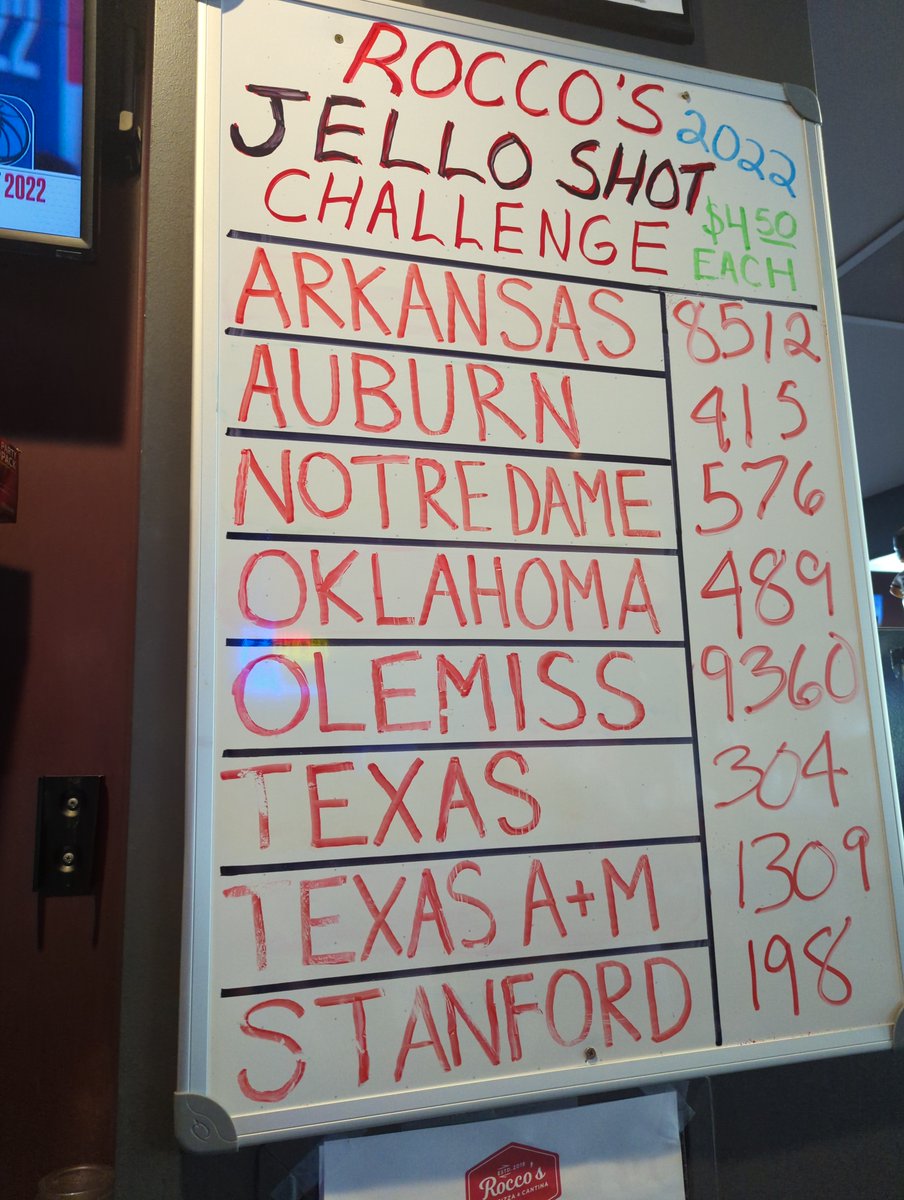 2022
ROCCO'S
2022
JELLO SHOT
CHALLENGE
$4.50
EACH
ARKANSAS 8512
AUBURN 415
NOTRE DAME 576
OKLAHOMA 489
OLE MISS 9360
TEXAS 304
TEXAS A+M 1309
STANFORD 198
Rocco's